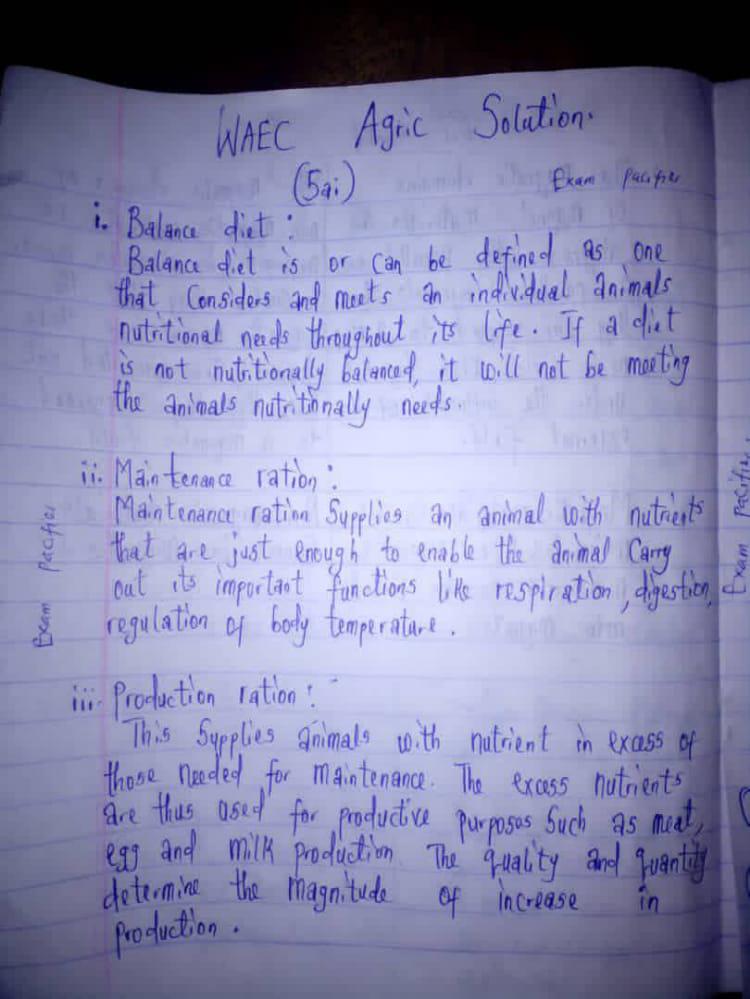 WAEC Agric Solution.
(5ai)
Exam Pacifier
i. Balance diet :
Balance diet is or can be defined as one
that Considers and meets an individual animals
nutritional needs throughout its life. If a diet
is not nutritionally balanced, it will not be meeting
the animals nutritionally needs.
ii. Maintenance ration :
Maintenance ration Supplies an animal with nutrients
that are just enough to enable the animal Carry
out its important functions like respiration, digestion,
regulation of body temperature.
Exam Pacifier
Exam Pacifier
iii. Production ration :
This Supplies animals with nutrient in excess of
those needed for maintenance. The excess nutrients
are thus used for productive purposes Such as meat,
egg and milk production. The quality and quantity
determine the magnitude of increase in
production.